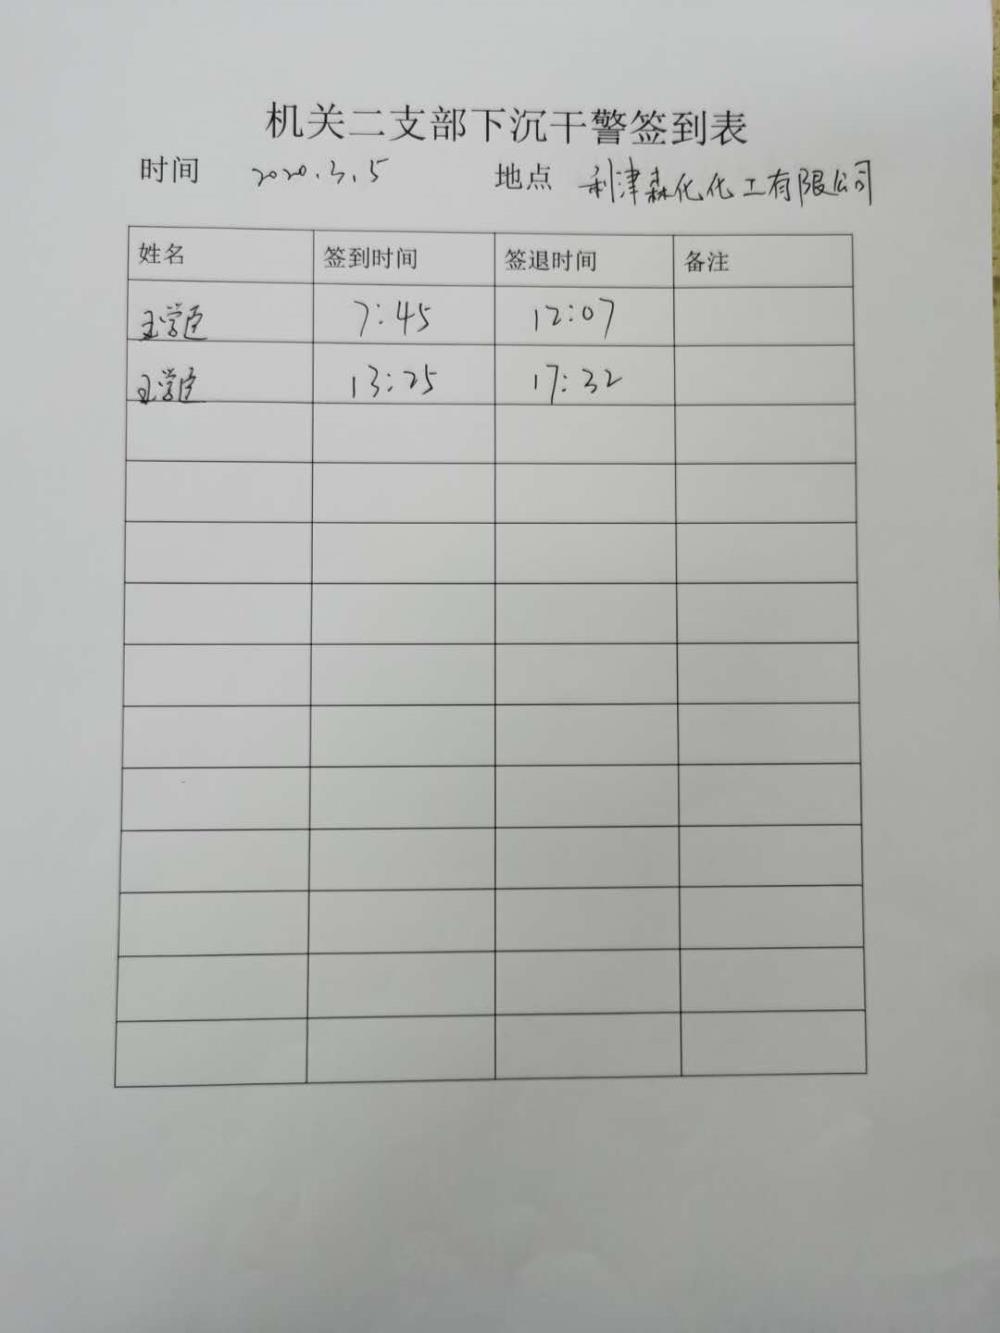 机关二支部下沉干警签到表
时间 2020.3.5 地点 利津森化化工有限公司
姓名 签到时间 签退时间 备注
王学臣 7:45 12:07
王学臣 13:25 17:32